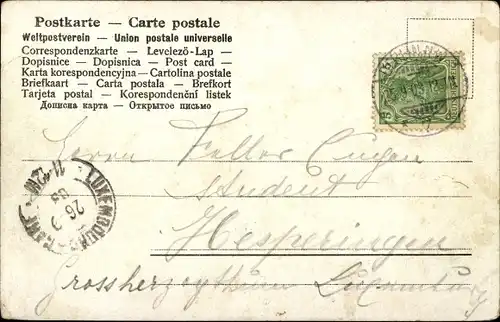 Postkarte — Carte postale
Weltpostverein — Union postale universelle
Correspondenzkarte — Levelező-Lap —
Dopisnice — Dopisnica — Post card —
Karta korespondencyjna — Cartolina postale
Briefkaart — Carta postala — Brefkort
Tarjeta postal — Korespondenční lístek
Дописна карта — Открытое письмо
Herrn Feller Eugen
Student
Hesperingen
Grossherzogthum Luxemburg
LUXEMBOURG